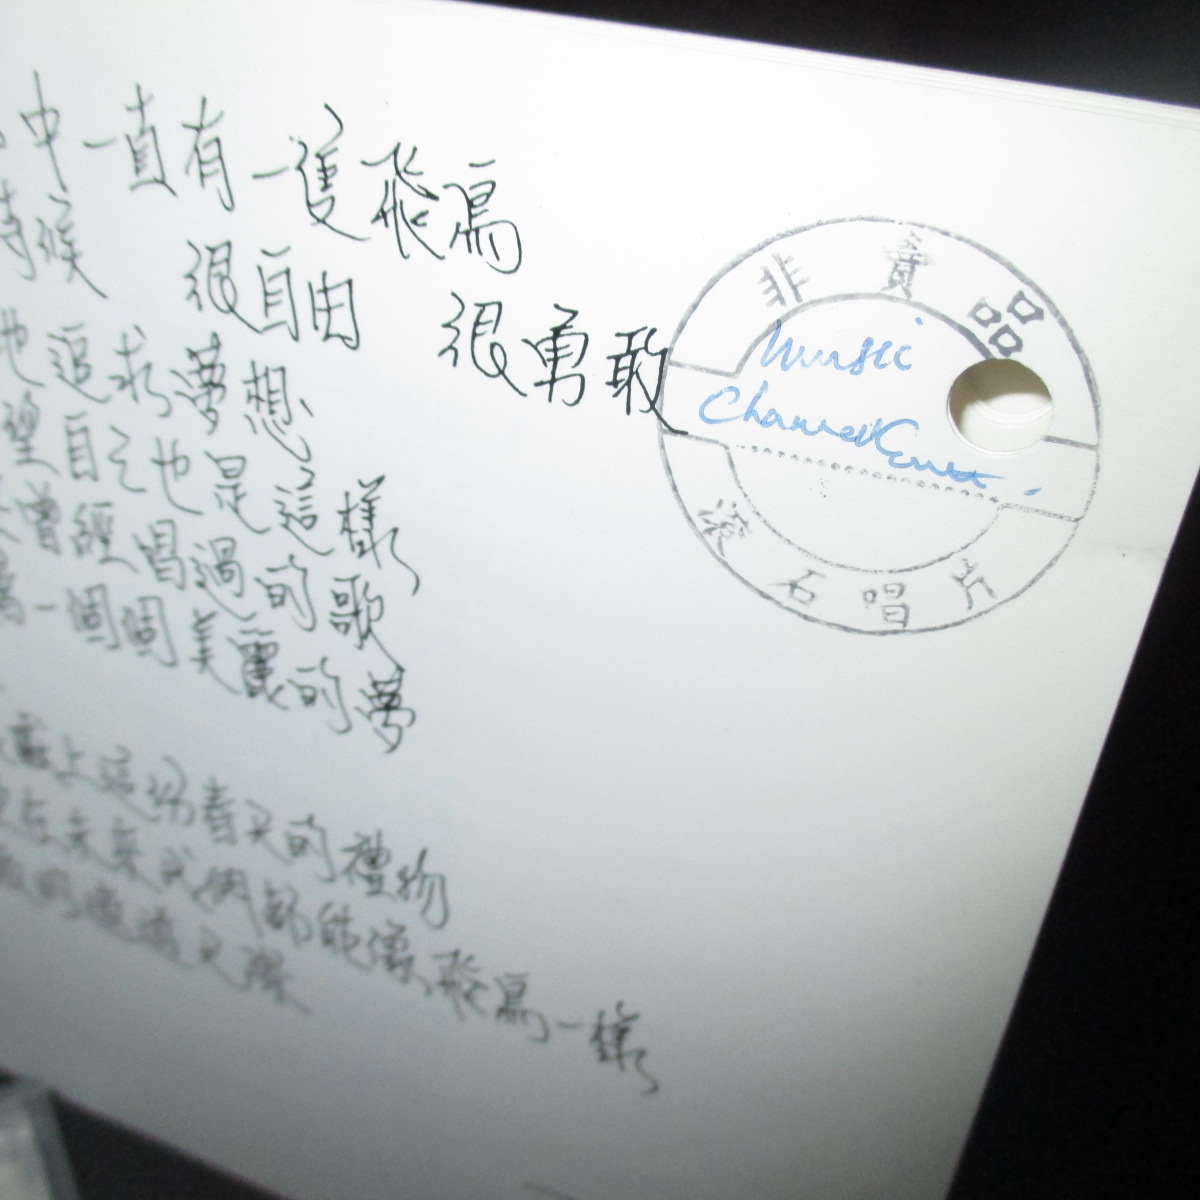 中一直有一隻飛鳥
時候 很自由 很勇敢
也追求夢想
望自己也是這樣
曾經唱過的歌
一個個美麗的夢
獻上這份春天的禮物
在未來我們都能像飛鳥一樣
的遨遊天際
非賣品
Music
Channel
滾石唱片